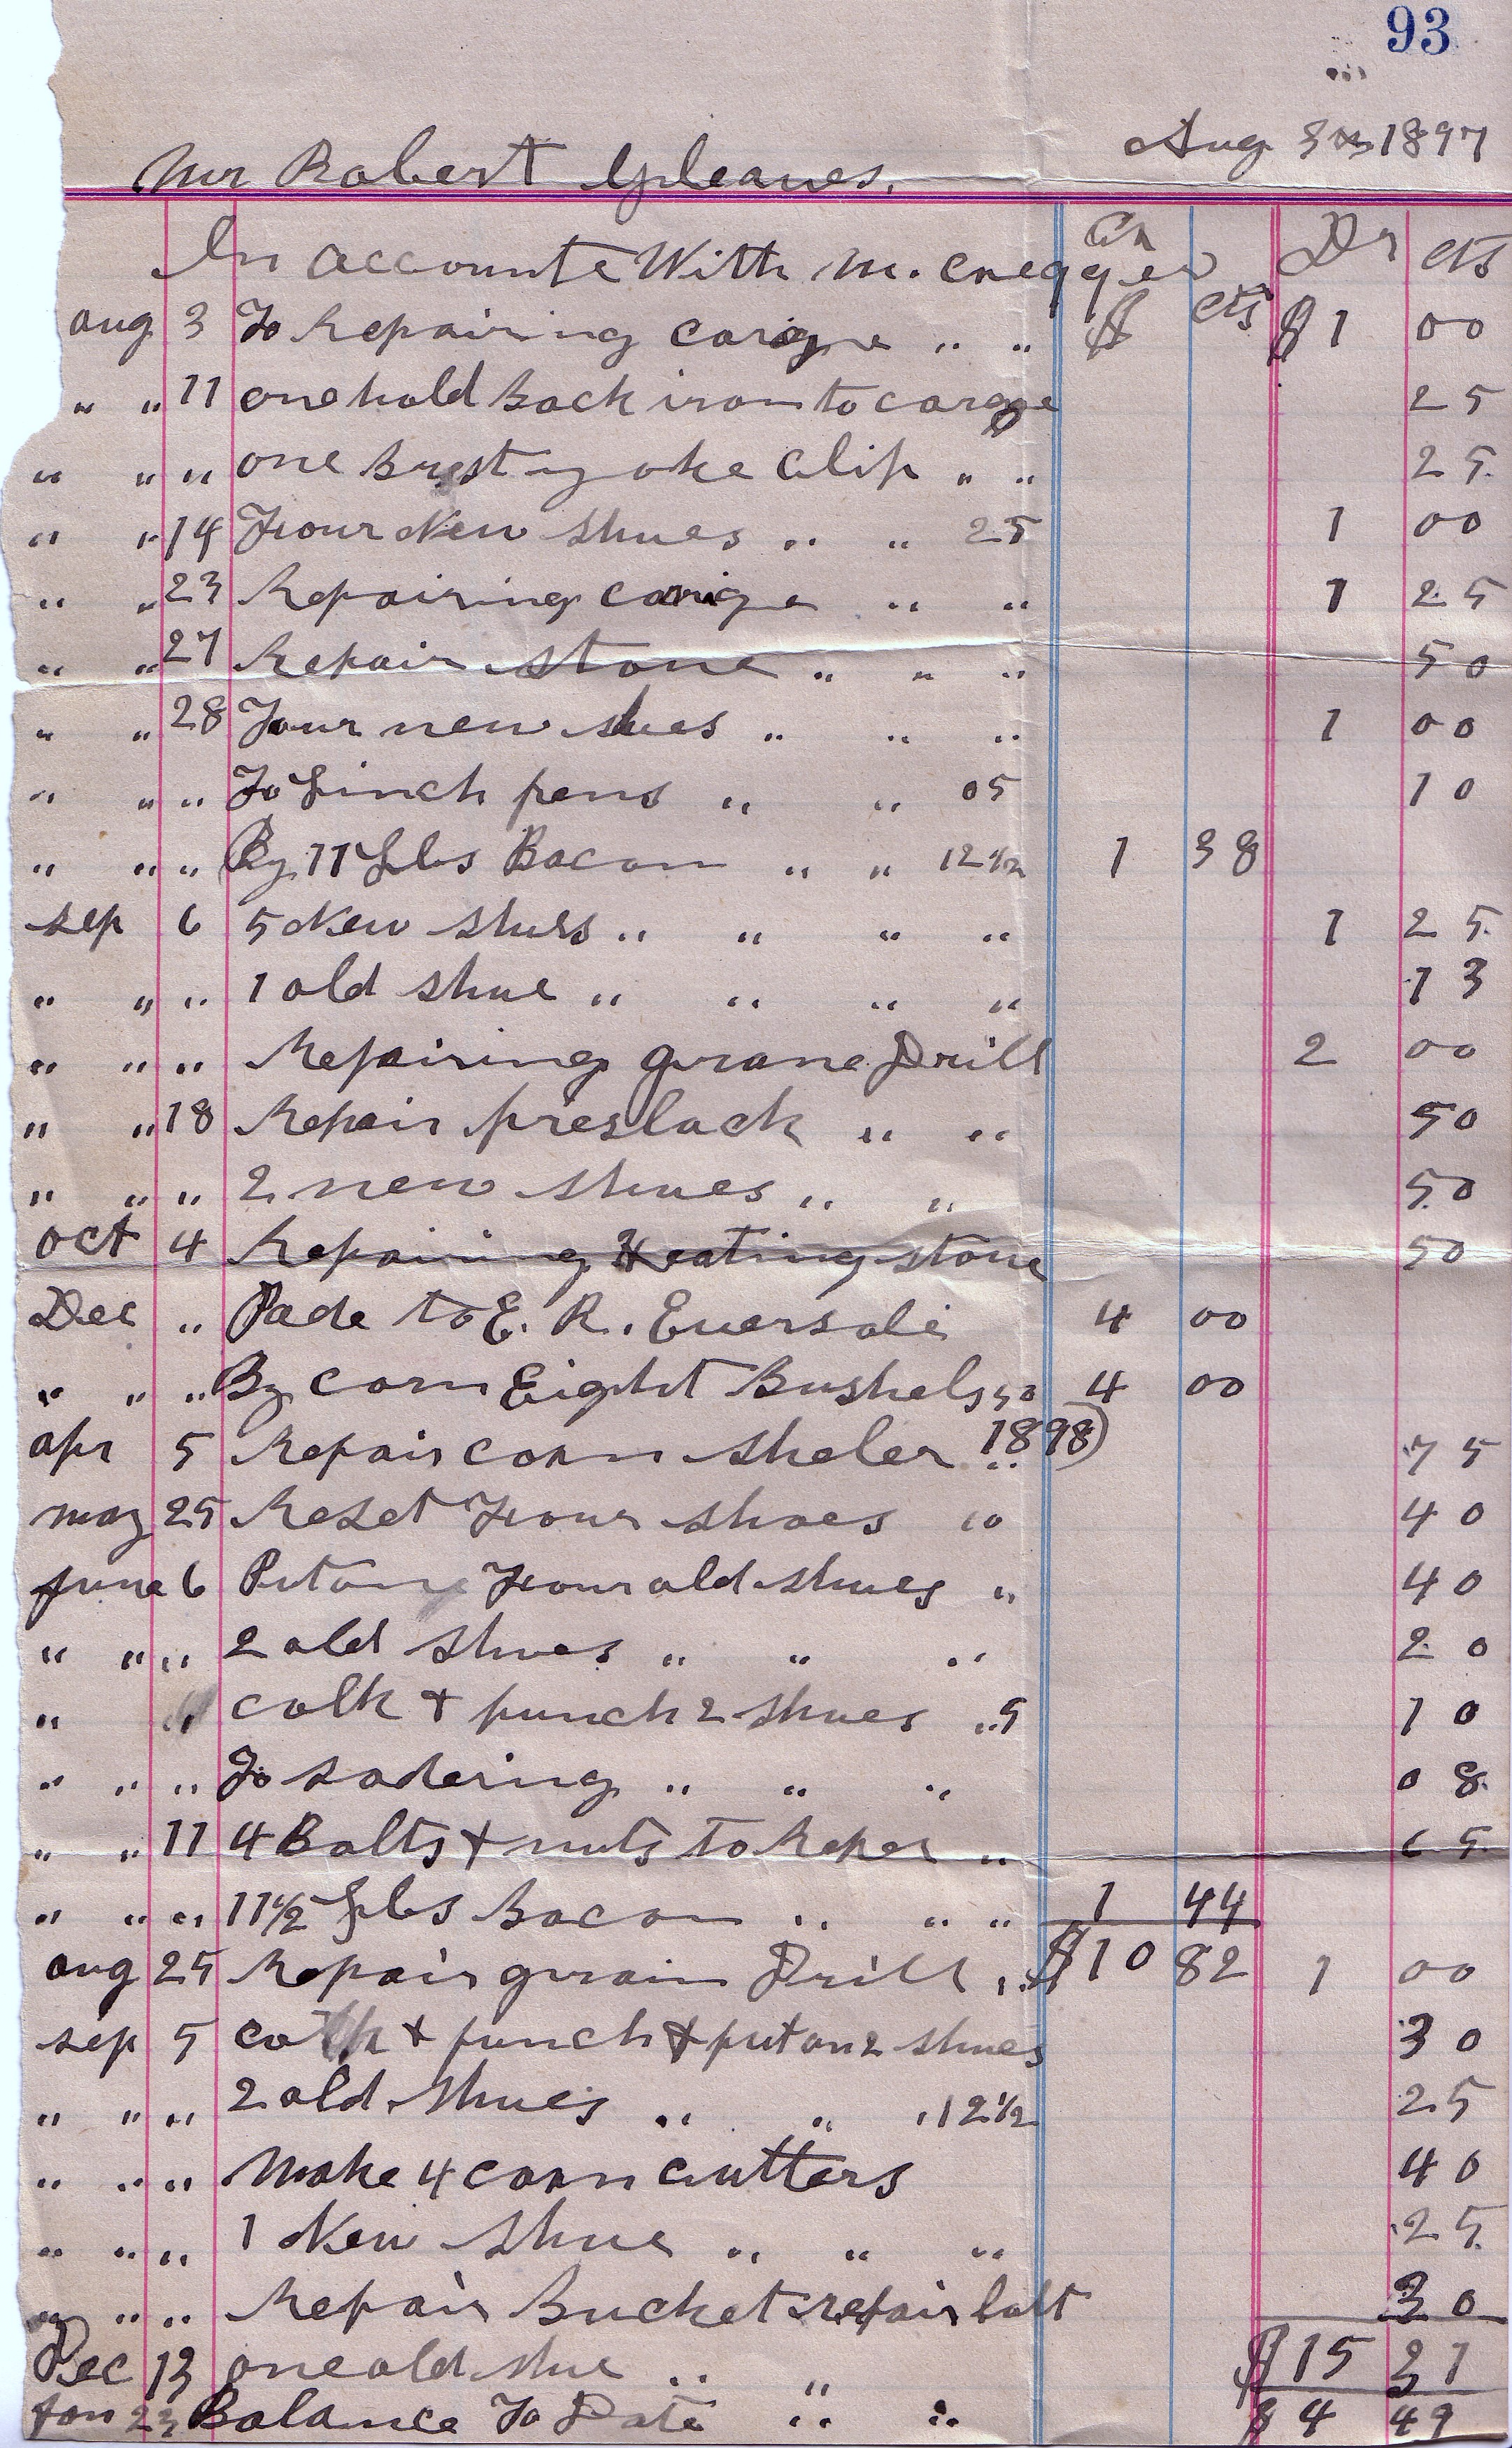 93
Aug 3 1897
Mr Robert Gleaves.
In accounte With M. Cregger Cr Dr cts
aug 3 To Repairing carige " " $ cts $ 1 00
" " 11 one hold Back iron to carige 25
" " " one Brest yoke Clip " " 25
" " 14 Four New Shues " " 25 1 00
" " 23 Repairing carige " " 1 25
" " 27 Repair stove " " " 50
" " 28 Four new shues " " " 1 00
" " " To Linch pens " " 05 10
" " " By 11 Lbs Bacon " " 12 1/2 1 38
sep 6 5 New Shues " " " " 1 25
" " " 1 old shue " " " " 13
" " " Repairing grane Drill 2 00
" " 18 Repair preslack " " 50
" " " 2 new shues " " 50
oct 4 Repairing Heating stove 50
Dec " Pade to E. R. Eversole 4 00
" " " By corn Eight Bushels 50 4 00
apr 5 Repair corn sheler " 1898) 75
may 25 Reset Four shoes 10 40
June 6 Puton Four old shues " 40
" " " 2 old shues " " " 20
" " colk + punch 2 shues " 5 10
" " " To sodering " " " 08
" " 11 4 Bolts + nuts to Reper " 65
" " " 11 1/2 Lbs Bacon " " " 1 44
aug 25 Repair grain Drill " $10 82 1 00
sep 5 colk + punch + put on 2 shues 30
" " " 2 old shues " " " 12 1/2 25
" " " Make 4 corn Cutters 40
" " " 1 New Shue " " " 25
" " " Repair Bucket repair bolt 30
Dec 13 one old shue " " $15 31
Jan 23 Balance To Date " " $ 4 49